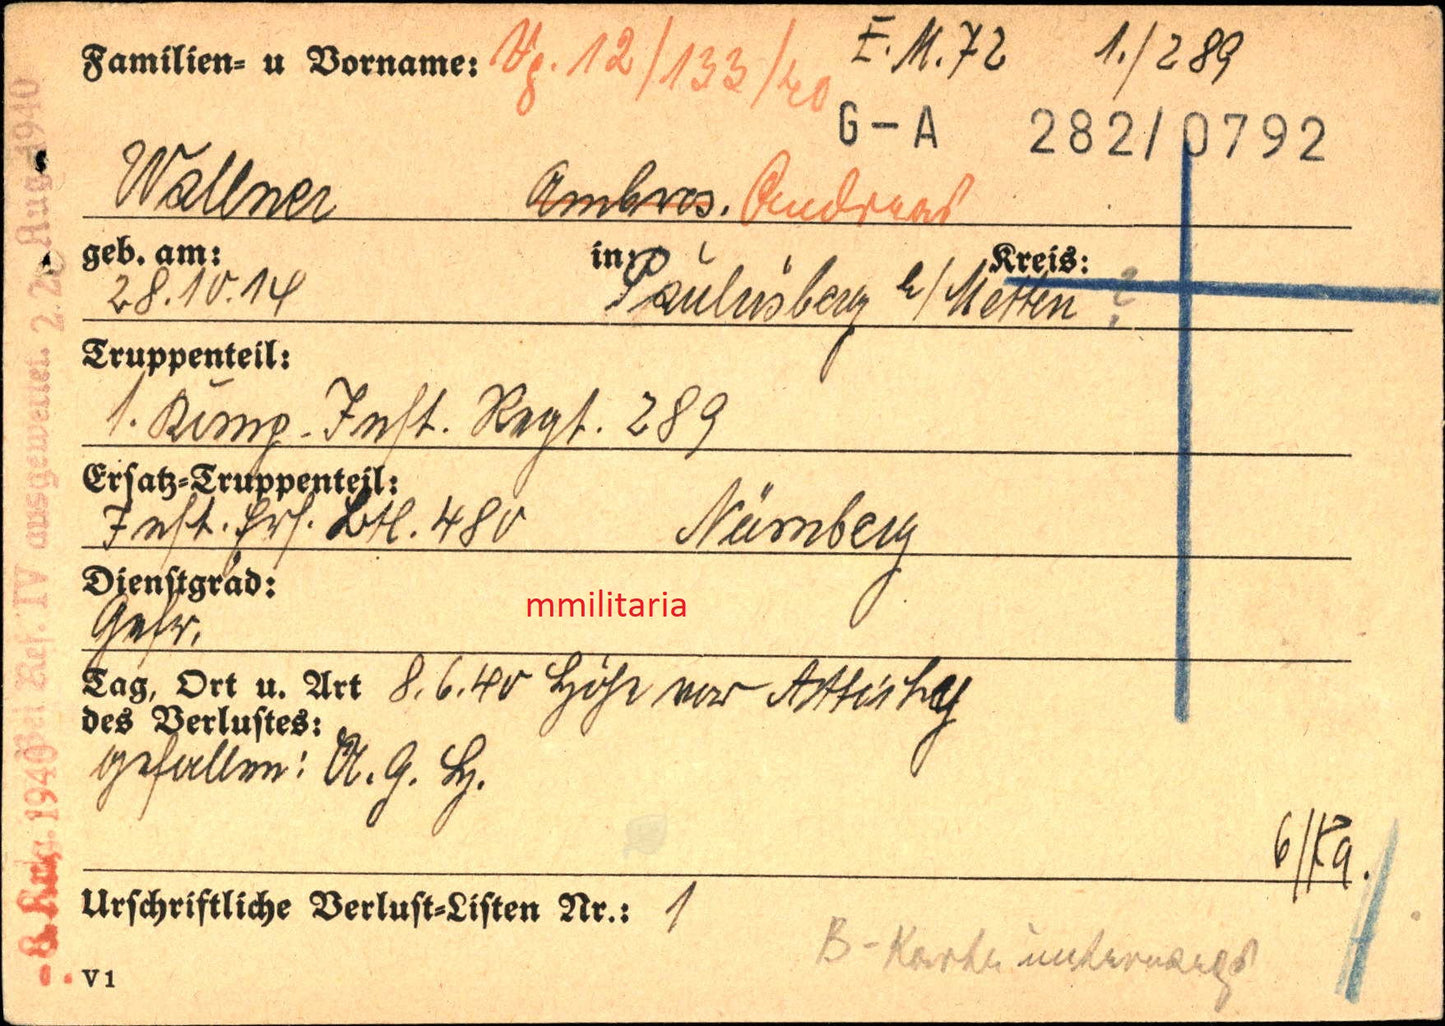 Familien= u Vorname: Vg. 12/133/40 E.M.72 1./289
G-A 282/0792
Wallner Ambros. Andreas
geb. am: in: Kreis:
28.10.14 Paulusberg b/Metten ?
Truppenteil:
1. Komp. Inft. Regt. 289
Ersatz=Truppenteil:
Inft. Ers. Btl. 480 Nürnberg
Dienstgrad:
Gefr.
mmilitaria
Tag, Ort u. Art 8.6.40 Höhe vor Attichy
des Verlustes:
gefallen: A.G. H.
6/Ka.
Urschriftliche Verlust=Listen Nr.: 1
B-Karte unterwegs
V 1
-8. Aug. 1940 Bei Ref. IV ausgewertet. 2. Aug. 1940